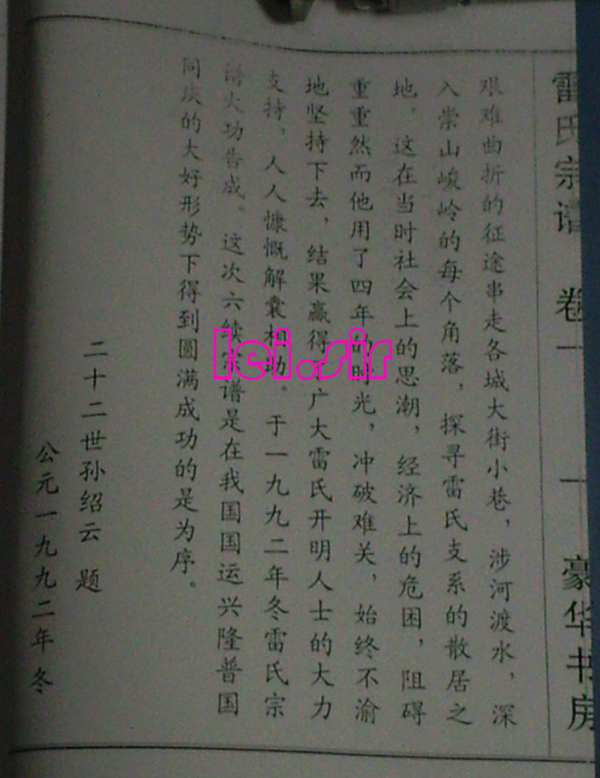 雷氏宗谱 卷一 一 豪华书房
艰难曲折的征途串走各城大街小巷，涉河渡水，深
入崇山峻岭的每个角落，探寻雷氏支系的散居之
地。这在当时社会上的思潮，经济上的危困，阻碍
重重然而他用了四年的时光，冲破难关，始终不渝
地坚持下去，结果赢得了广大雷氏开明人士的大力
支持，人人慷慨解囊相助。于一九九二年冬雷氏宗
谱大功告成。这次六续宗谱是在我国国运兴隆普国
同庆的大好形势下得到圆满成功的是为序。
二十二世孙绍云 题
公元一九九二年冬
lei.sir